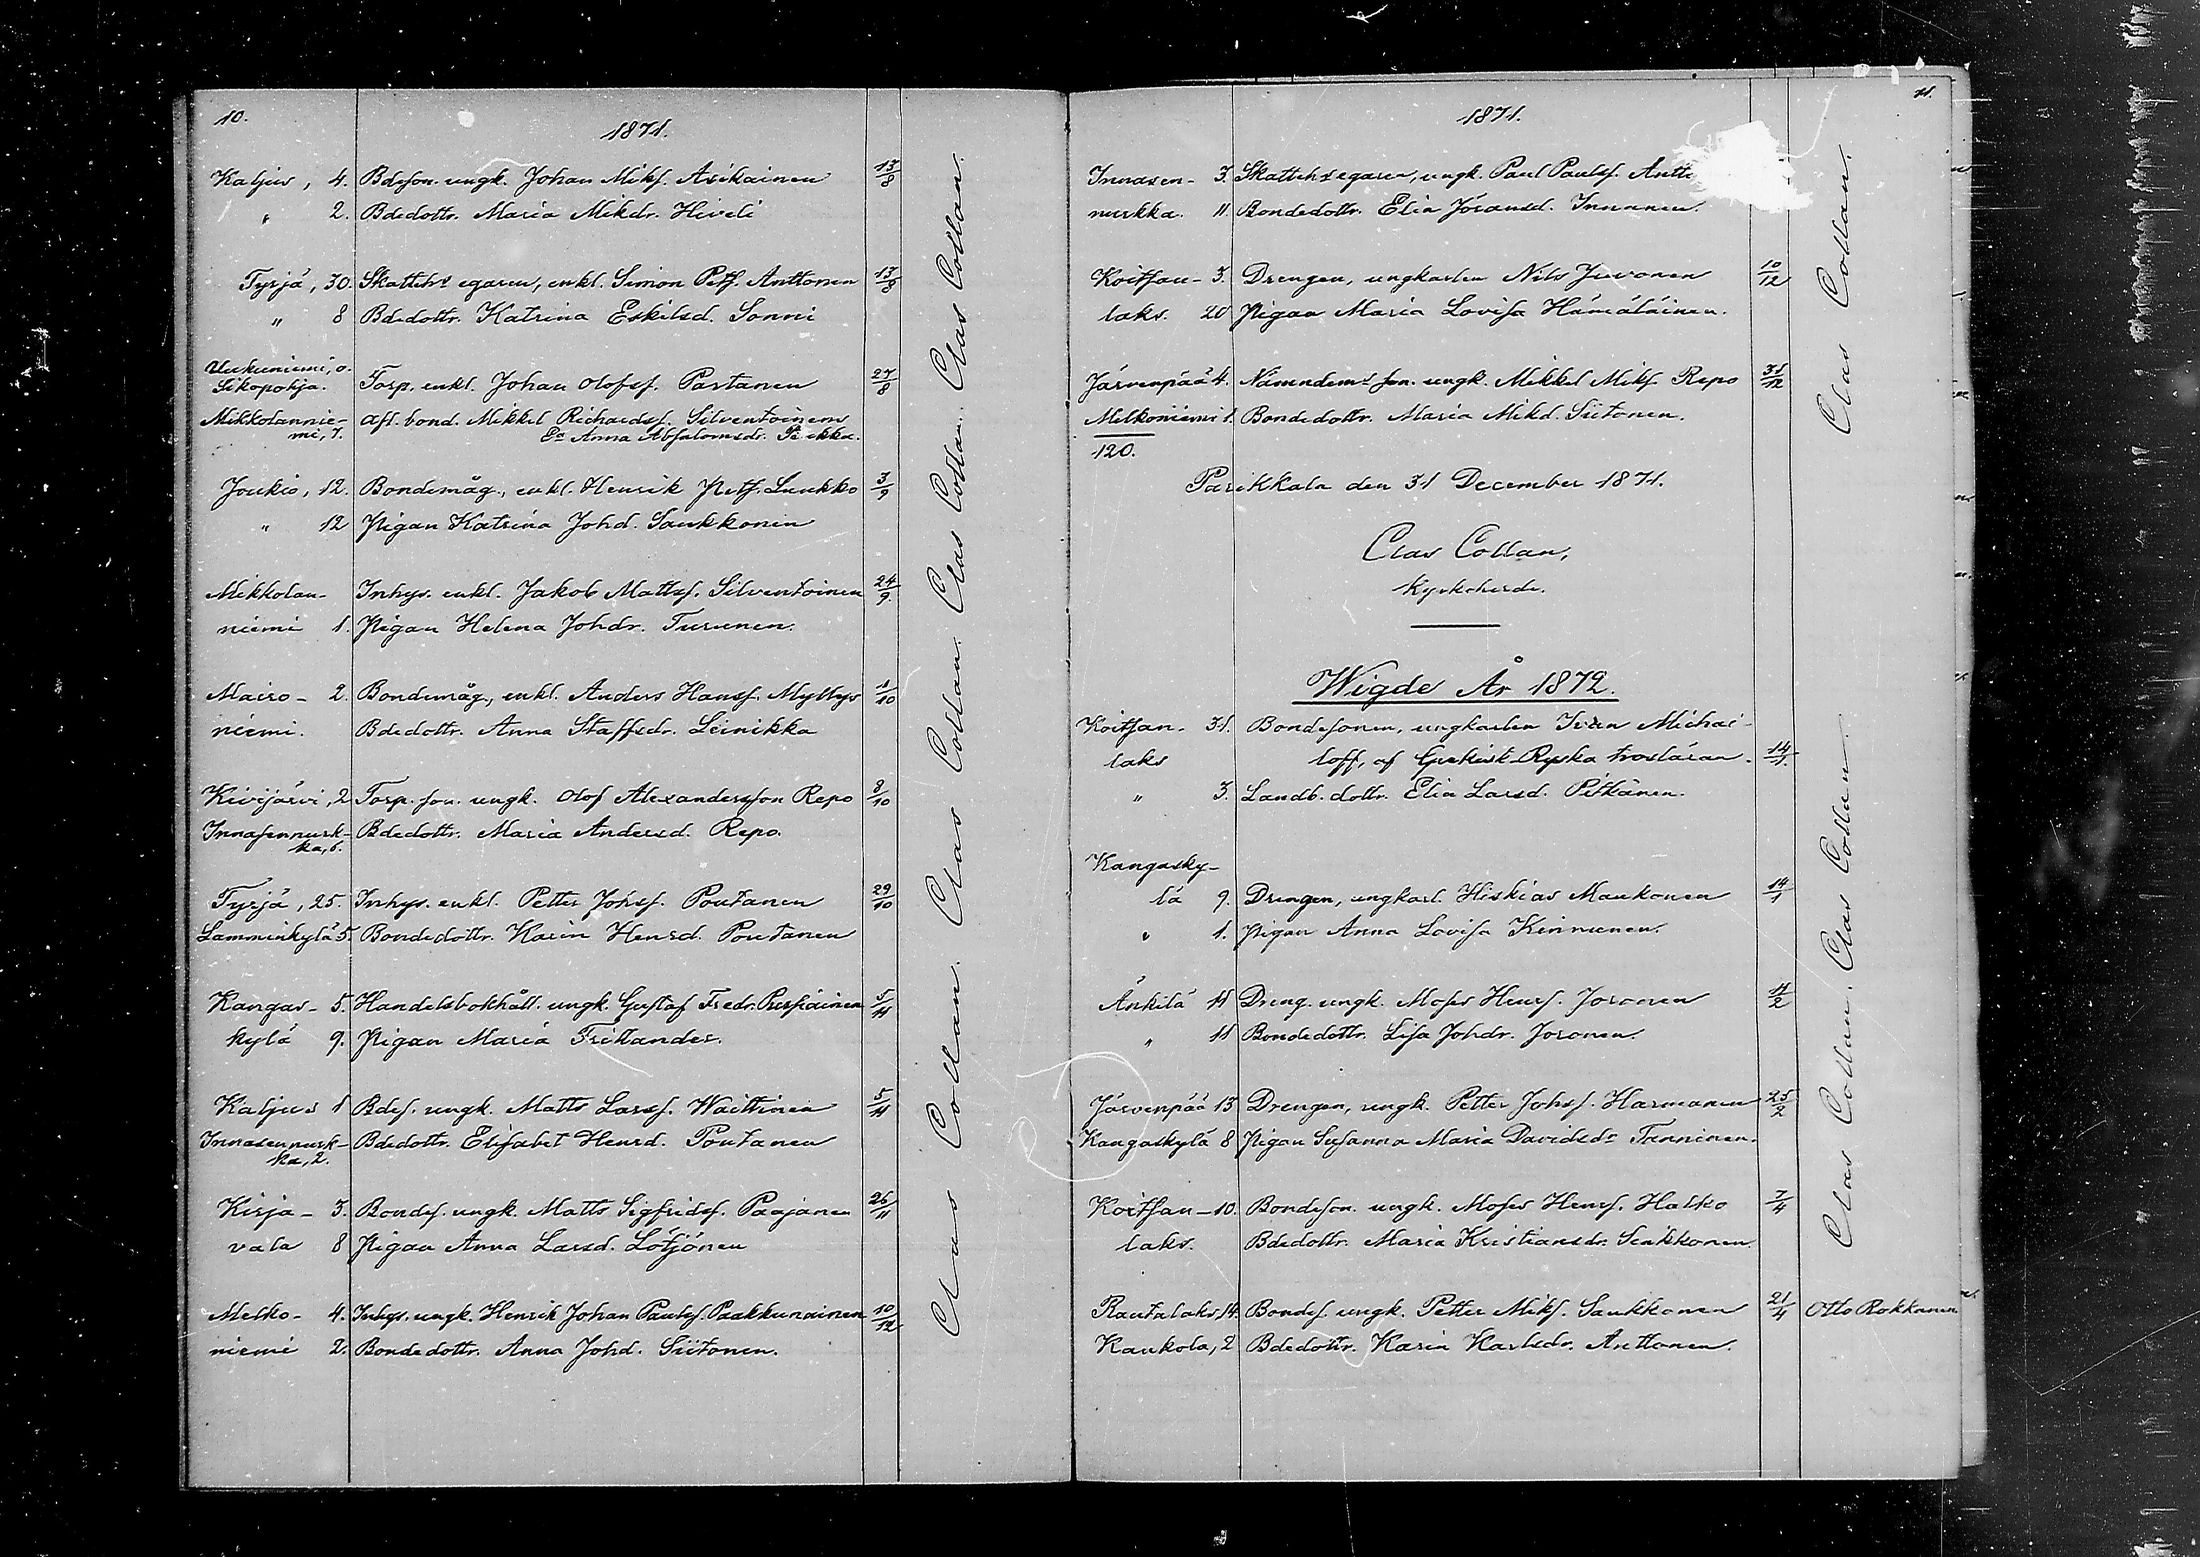 10.
1871.
Kaljus, 4. Bdeson. ungk. Johan Miks. Asikainen 13/8
" 2. Bdedottr. Maria Mikdr. Hiveli
Tyrjä, 30. Skattehs egaren, enkl. Simon Petf. Anttonen 13/8
" 8 Bdedottr. Katrina Eskilsd. Sonni
Uukuniemi, o. Sikopohja. Torp. enkl. Johan Olofsf. Partanen 27/8
Mikkolannie- Afl. bond. Mikkel Richardsf. Silventoinens
mi, 7. Ea Anna Absalomsdr.
Joukio, 12. Bondemåg., enkl. Henrik Petf. Luukko 3/9
" 12 Pigan Katrina Johd. Saukkonen
Mikkolan- Inhys. enkl. Jakob Mattsf. Silventoinen 24/9.
niemi 1. Pigan Helena Johdr. Turunen.
Mairo- 2. Bondemåg., enkl. Anders Hansf. Myllys 1/10
niemi. Bdedottr. Anna Staffsdr. Leinikka
Kivijärvi, 2 Torp. son. ungk. Olof Alexandersson Repo 8/10
Innasennurk- Bdedottr. Maria Andersd. Repo.
ka, 6.
Tyrjä, 25. Inhys. enkl. Petter Johsf. Poutanen 29/10
Lamminkylä 5. Bondedottr. Karin Hensd. Poutanen
Kangas- 5. Handelsbokhåll. ungk. Gustaf Fredr. Pursiainen 5/11
kylä 9. Pigan Maria Frilander.
Kaljus 1 Bdef. ungk. Matts Larsf. Waittinen 5/11
Innasennurk- Bdedottr. Elisabet Hensd. Poutanen
ka, 2.
Kirja- 3. Bondef. ungk. Matts Sigfridsf. Paajanen 26/11
vala 8 Pigan Anna Larsd. Lötjönen
Melko- 4. Inhys. ungk. Henrik Johan Paulsf. Paakkunainen 10/12
niemi 2. Bondedottr. Anna Johd. Siitonen.
Clas Collan. Clas Collan. Clas Collan. Clas Collan. Clas Collan.
11.
1871.
Innasen- 3. Skattehsegaren, ungk. Paul Paulsf. Antt
nurkka. 11. Bondedottr. Elia Göransd. Innanen.
Koitsan- 3. Drengen, ungkarlen Nils Juvonen 10/12
laks. 20 Pigan Maria Lovisa Hämäläinen.
Järvenpää 4. Nämndems son. ungk. Mikkel Miks. Repo 31/12
Melkoniemi 1. Bondedottr. Maria Mikd. Siitonen.
120.
Parikkala den 31 December 1871.
Clas Collan,
Kyrkoherde.
Wigde År 1872.
Koitsan- 31. Bondesonen, ungkarlen Ivan Michai-
laks loff, af Grekisk-Ryska trosläran. 14/1.
" 3. Landb. dottr. Elia Larsd. Pitkänen.
Kangasky-
lä 9. Drengen, ungkarl. Hiskias Maukonen 14/1
" 1. Pigan Anna Lovisa Kinnunen.
Änkilä 11 Dreng. ungk. Moses Hensf. Joronen 11/2
" 11 Bondedottr. Lisa Johdr. Joronen.
Järvenpää 13 Drengen, ungk. Petter Johsf. Harmanen 25/2
Kangaskylä 8 Pigan Susanna Maria Davidsdr Tanninen.
Koitsan- 10. Bondeson. ungk. Moses Hensf. Halko 7/4
laks. Bdedottr. Maria Kristiansdr. Sinkkonen.
Rautalaks, 14. Bondes. ungk. Petter Miks. Saukkonen 21/4 Otto Rokkanen.
Kaukola, 2 Bdedottr. Karin Karlsdr. Anttonen.
Clas Collan.
Clas Collan. Clas Collan.